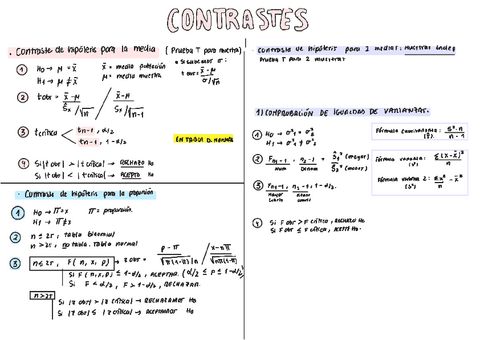 CONTRASTES
· Contraste de hipótesis para la media (Prueba T para muestra)
① H0 → μ = x̄ x̄ = media población
H1 → μ ≠ x̄ μ = media muestra
• Si sabemos σ:
t obs = x̄-μ / σ/√n
② t obs = x̄-μ / Sx/√n x̄-μ / Sx/√n-1
③ t crítico tn-1, α/2
tn-1, 1-α/2
④ Si |t obs| > |t crítico| → RECHAZO H0
Si |t obs| < |t crítico| → ACEPTO H0
· Contraste de hipótesis para la proporción
① H0 → π = x π = proporción.
H1 → π ≠ x
② n ≤ 25, tabla binomial
n > 25, no tabla. Tabla normal
③ n ≤ 25, F(n, x, p) → z obs = p - π / √π(1-π)/n x-nπ / √nπ(1-π)
Si F(n,x,p) ≤ 1-α/2, ACEPTAR. (α/2 ≤ p ≤ 1-α/2)
Si F < α/2, > F, RECHAZAR.
n > 25
Si |z obs| > |z crítico| → RECHAZAMOS H0
Si |z obs| ≤ |z crítico| → ACEPTAMOS H0
Contraste de hipótesis para 2 medias: muestras
Prueba T para 2 muestras
1) COMPROBACIÓN DE IGUALDAD DE VARIANZAS.
① H0 → σ²1 = σ²2
H1 → σ²1 ≠ σ²2
Fórmula
S²·n / n-1
② Fn1-1, n2-1 = Ŝ²1 (mayor) / Ŝ²2 (menor)
Num Denom
Fórmula varianza: Σ(x-x̄)² / n
(S²)
Fórmula varianza 2: Σx² / n - x̄²
(S²)
③ Fn1-1, n2-1, 1-α/2.
④ Si F obs > F crítico, RECHAZO H0
Si F obs ≤ F crítico, ACEPTO H0.